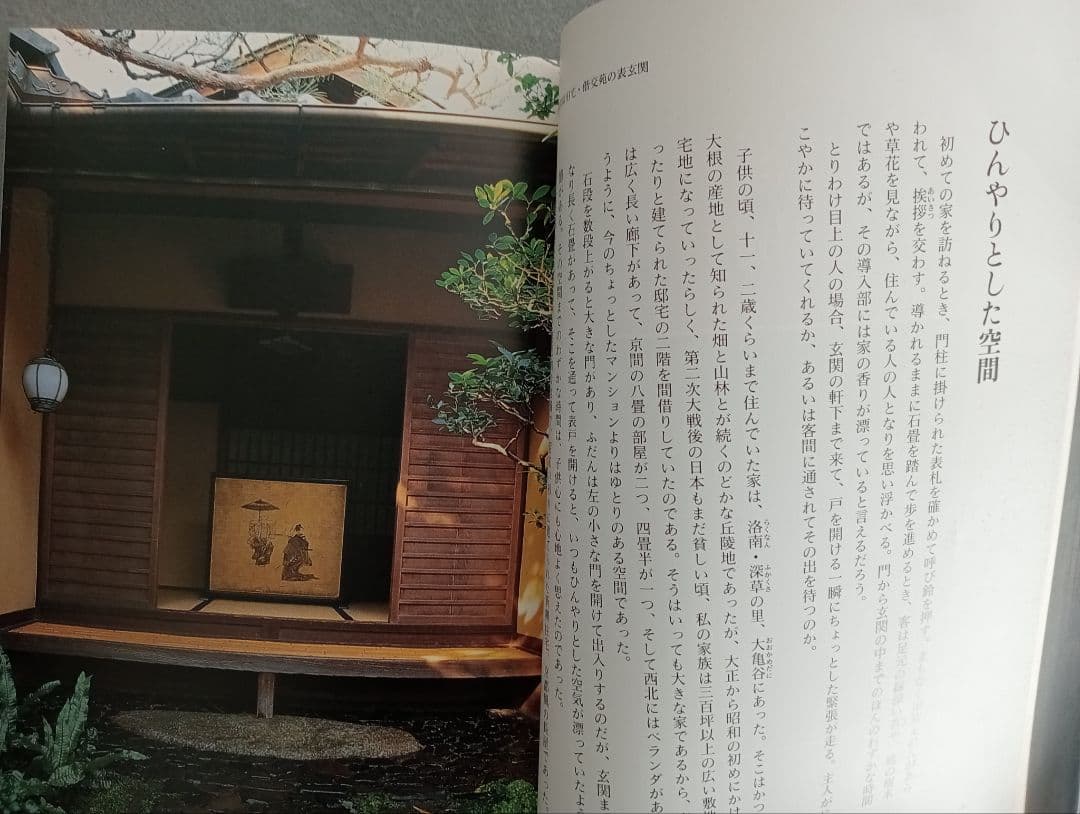 ・偕交苑の表玄関
ひんやりとした空間
初めての家を訪ねるとき、門柱に掛けられた表札を確かめて呼び鈴を押す。
われて、挨拶を交わす。導かれるままに石畳を踏んで歩を進めるとき、客は足元の
や草花を見ながら、住んでいる人の人となりを思い浮かべる。門から玄関の中までのほんのわずかな時間
ではあるが、その導入部には家の香りが漂っていると言えるだろう。
とりわけ目上の人の場合、玄関の軒下まで来て、戸を開ける一瞬にちょっとした緊張が走る。主人が
こやかに待っていてくれるか、あるいは客間に通されてその出を待つのか。
子供の頃、十一、二歳くらいまで住んでいた家は、洛南・深草の里、大亀谷にあった。そこはかつ
大根の産地として知られた畑と山林とが続くのどかな丘陵地であったが、大正から昭和の初めにかけ
宅地になっていったらしく、第二次大戦後の日本もまだ貧しい頃、私の家族は三百坪以上の広い敷地
ったりと建てられた邸宅の二階を間借りしていたのである。そうはいっても大きな家であるから、
は広く長い廊下があって、京間の八畳の部屋が二つ、四畳半が一つ、そして西北にはベランダがあ
うように、今のちょっとしたマンションよりはゆとりのある空間であった。
石段を数段上がると大きな門があり、ふだんは左の小さな門を開けて出入りするのだが、玄関ま
なり長く石畳があって、そこを通って表戸を開けると、いつもひんやりとした空気が漂っていたよう
がある。その空間までのわずかな時間は、子供心にも心地よく思えたのであった。